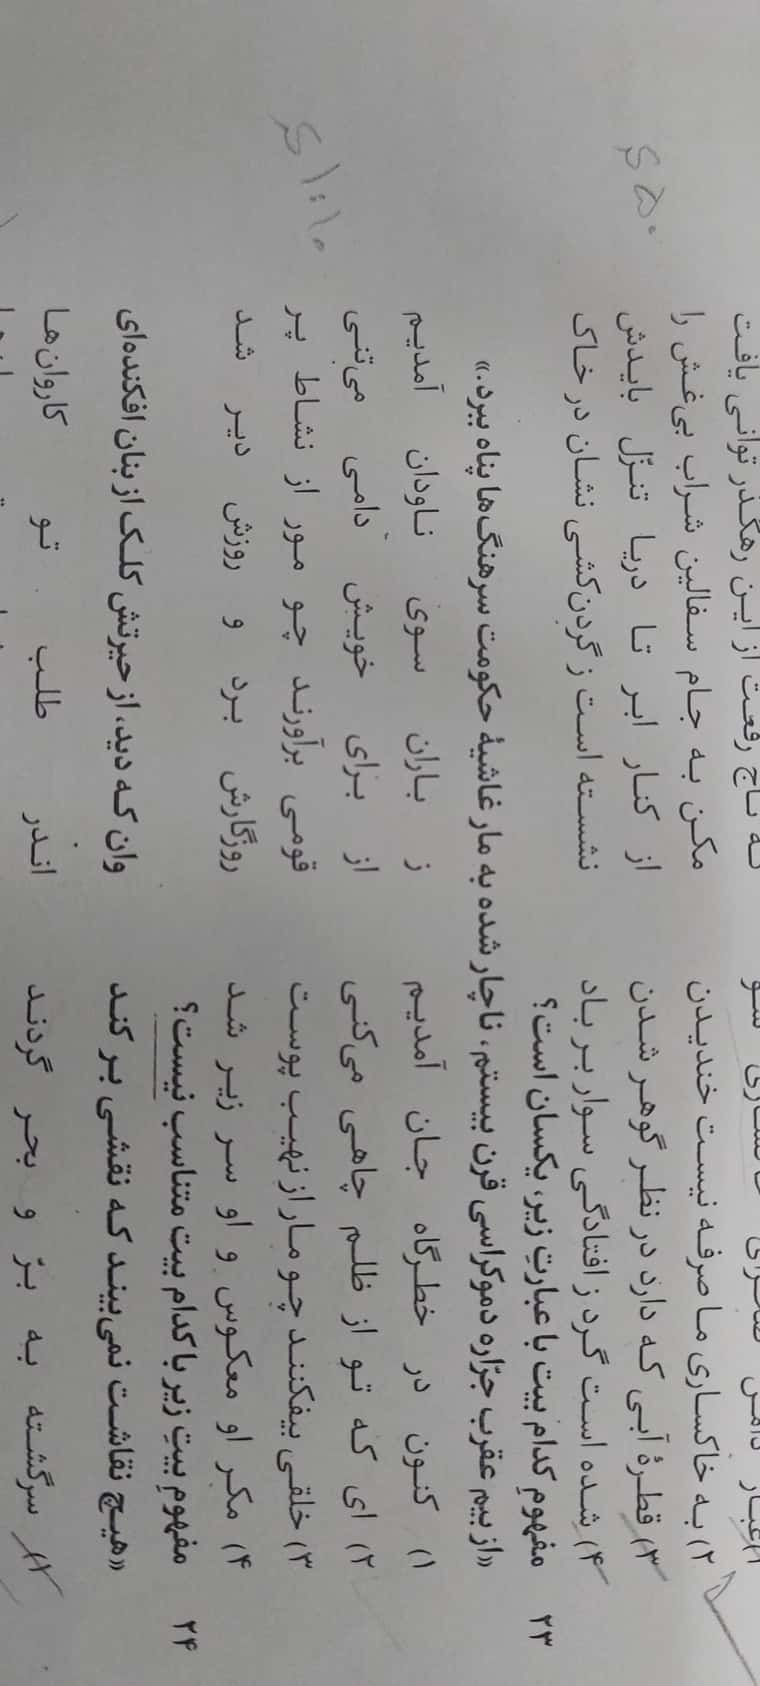 ۲) به خاکساری ما صرفه نیست خندیدن مکن به جام سفالین شراب بی‌غش را
۳) قطرهٔ آبی که دارد در نظر گوهر شدن از کنار ابر تا دریا تنزّل بایدش
۴) شده است گرد ز افتادگی سوار بر باد نشسته است ز گردن‌کشی نشان در خاک
۲۳ مفهوم کدام بیت با عبارتِ زیر، یکسان است؟
«از بیم عقرب جرّاره دموکراسی قرن بیستم، ناچار شده به مار غاشیهٔ حکومت سرهنگ‌ها پناه ببرد.»
۱) کنون در خطرگاه جان آمدیم ز باران سوی ناودان آمدیم
۲) ای که تو از ظلم چاهی می‌کنی از برای خویش دامی می‌تنی
۳) خلقی بیفکنند چو مار از نهیب پوست قومی برآورند چو مور از نشاط پر
۴) مکر او معکوس و او سر زیر شد روزگارش برد و روزش دیر شد
۲۴ مفهوم بیتِ زیر با کدام بیت متناسب نیست؟
«هیچ نقاشت نمی‌بیند که نقشی بر کند وان که دید، از حیرتش کلک از بنان افکنده‌ای
۱) سرگشته به برّ و بحر گردند اندر طلب تو کاروان‌ها
۵۰
۱:۱۰